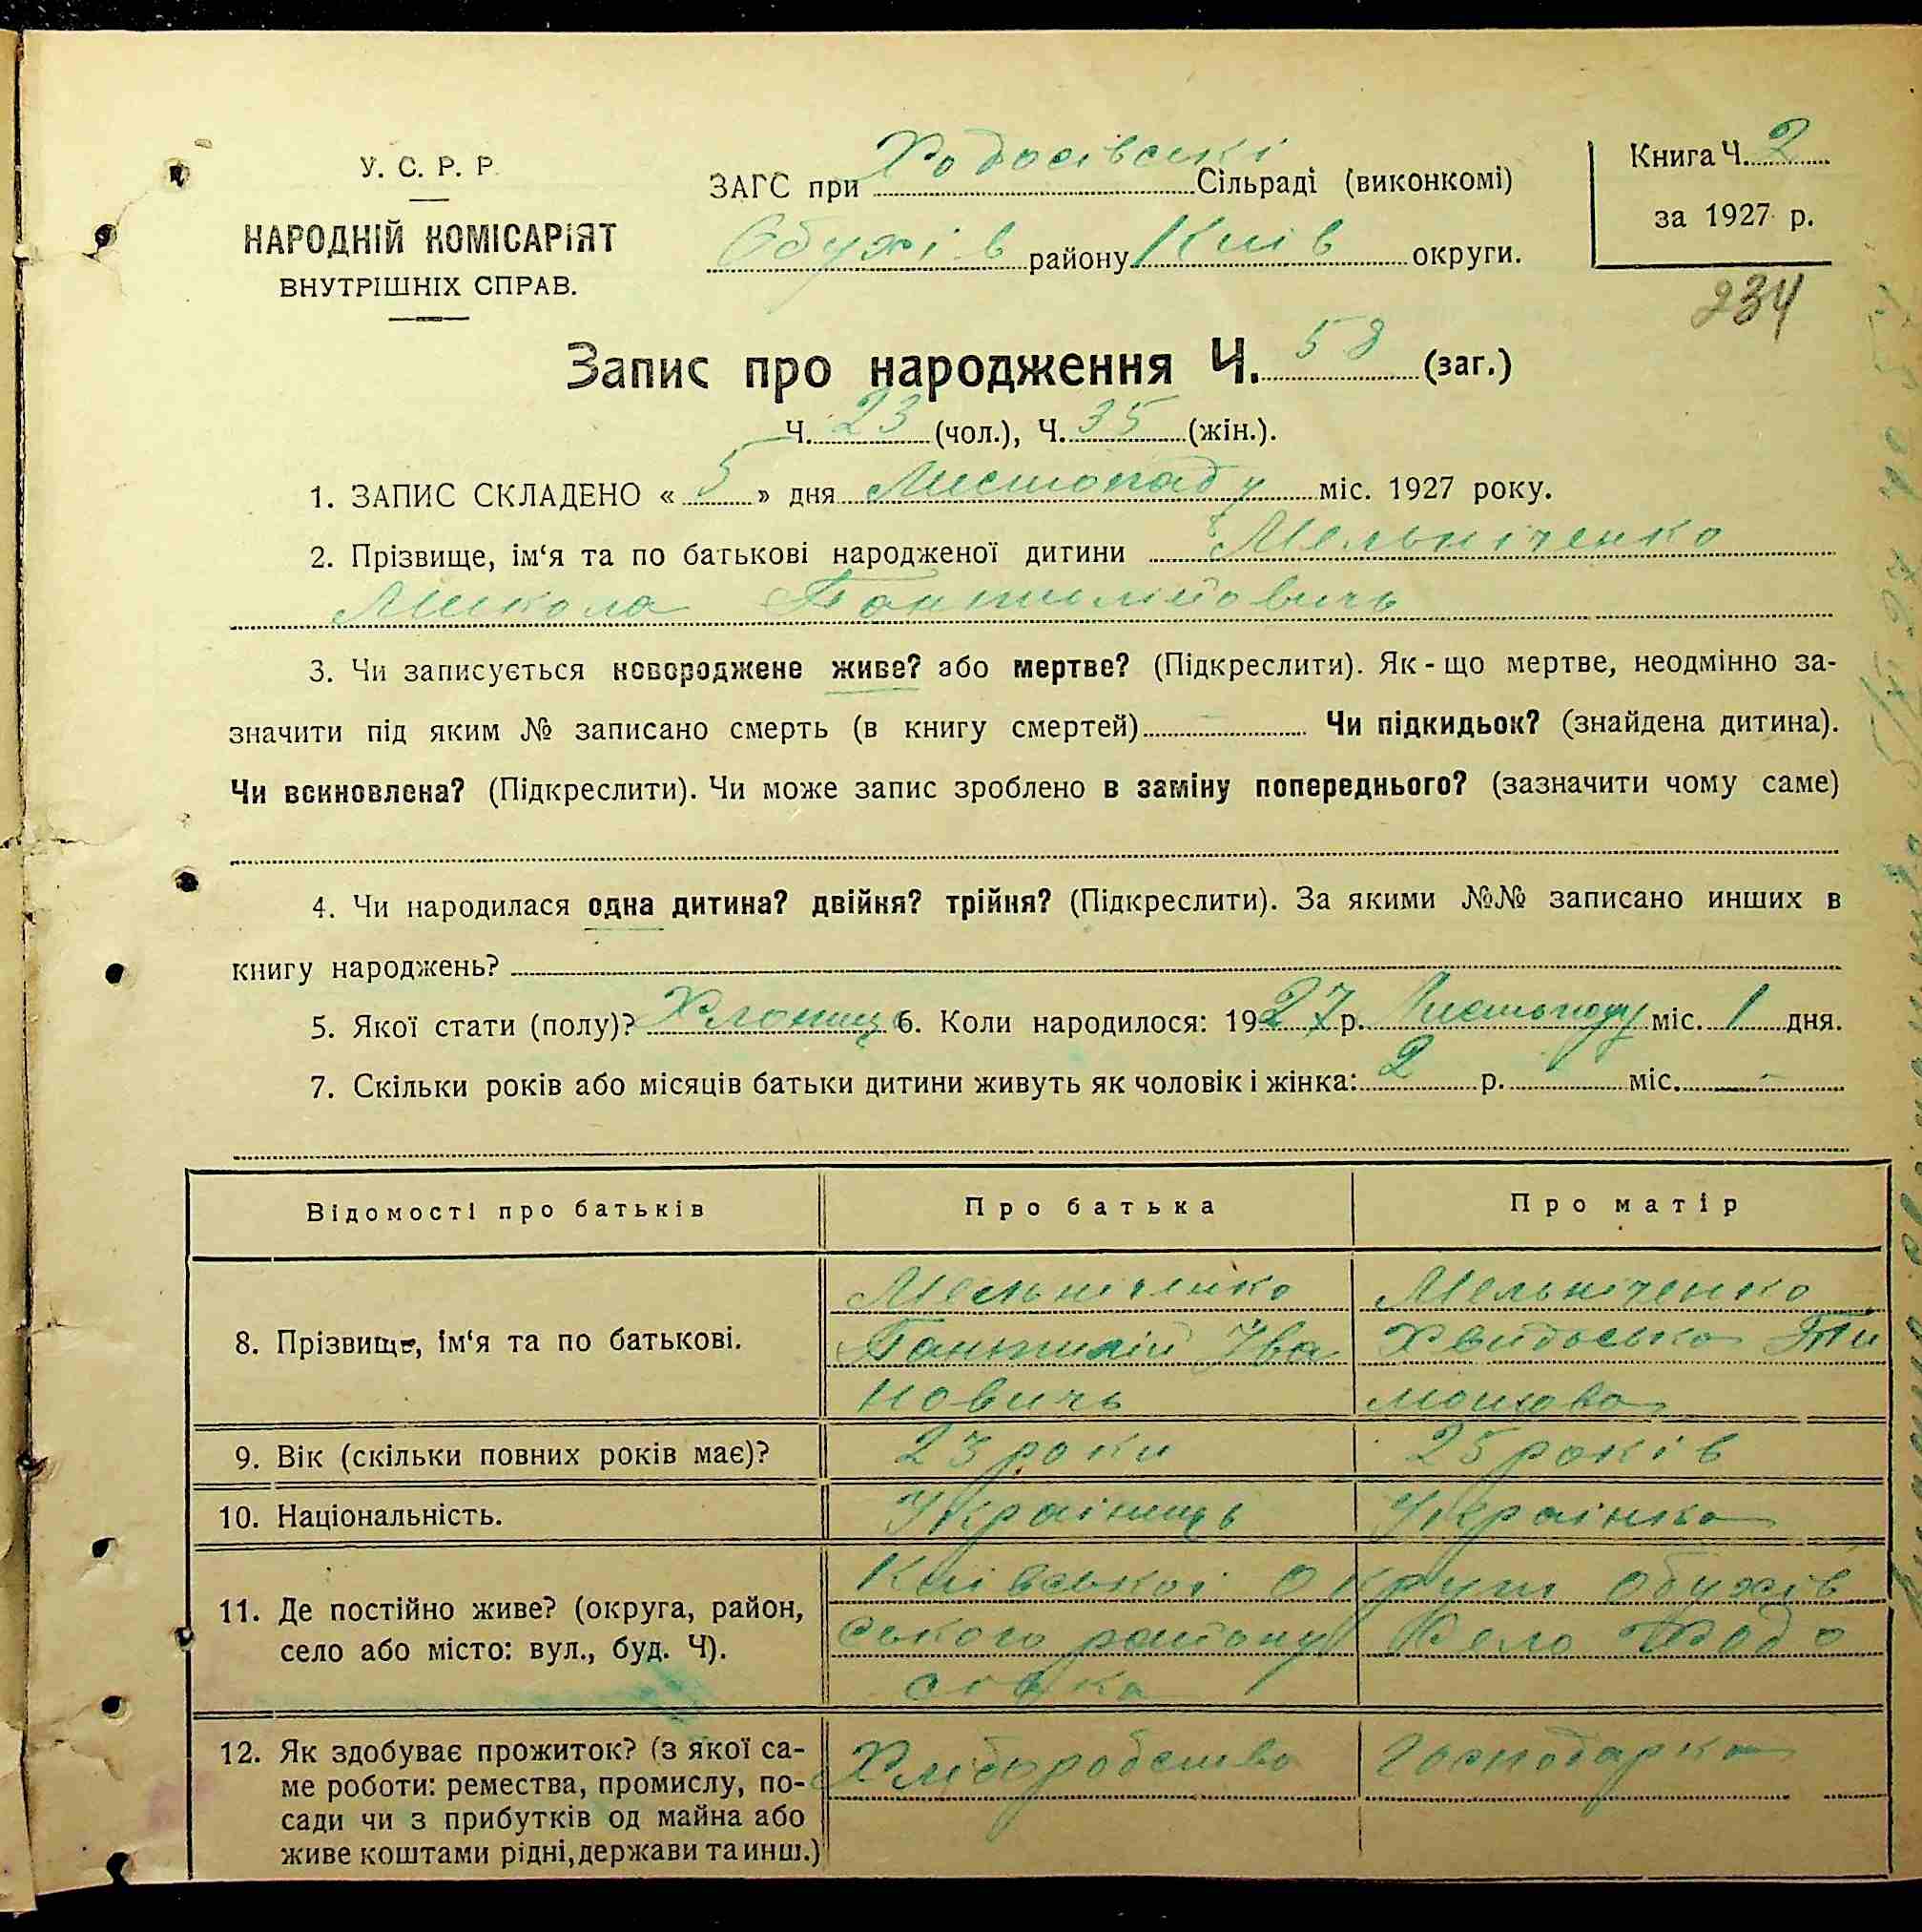 У. С. Р. Р.
НАРОДНІЙ КОМІСАРІЯТ
ВНУТРІШНІХ СПРАВ.
ЗАГС при Ходосівські Сільраді (виконкомі)
Обухів району Київ округи.
Книга Ч. 2
за 1927 р.
234
Запис про народження Ч. 58 (заг.)
Ч. 23 (чол.), Ч. 35 (жін.).
1. ЗАПИС СКЛАДЕНО « 5 » дня Листопаду міс. 1927 року.
2. Прізвище, ім‘я та по батькові народженої дитини Мельніченко
Микола Пантилійовичь
3. Чи записується новороджене живе? або мертве? (Підкреслити). Як-що мертве, неодмінно за-
значити під яким № записано смерть (в книгу смертей) Чи підкидьок? (знайдена дитина).
Чи всиновлена? (Підкреслити). Чи може запис зроблено в заміну попереднього? (зазначити чому саме)
4. Чи народилася одна дитина? двійня? трійня? (Підкреслити). За якими №№ записано инших в
книгу народжень?
5. Якої стати (полу)? Хлопиць 6. Коли народилося: 1927 р. Листопаду міс. 1 дня.
7. Скільки років або місяців батьки дитини живуть як чоловік і жінка: 2 р. - міс. -
Відомості про батьків Про батька Про матір
8. Прізвище, ім‘я та по батькові.
Мельниченко
Пантилій Іва
новичь
Мельніченко
Хвидоська Ти
мохова
9. Вік (скільки повних років має)? 23 роки 25 років
10. Національність. Українець Українка
11. Де постійно живе? (округа, район,
село або місто: вул., буд. Ч).
Київської Округи Обухів
ського району Село Ходо
сівка
12. Як здобуває прожиток? (з якої са-
ме роботи: ремества, промислу, по-
сади чи з прибутків од майна або
живе коштами рідні, держави та инш.)
Хліборобство Господарка